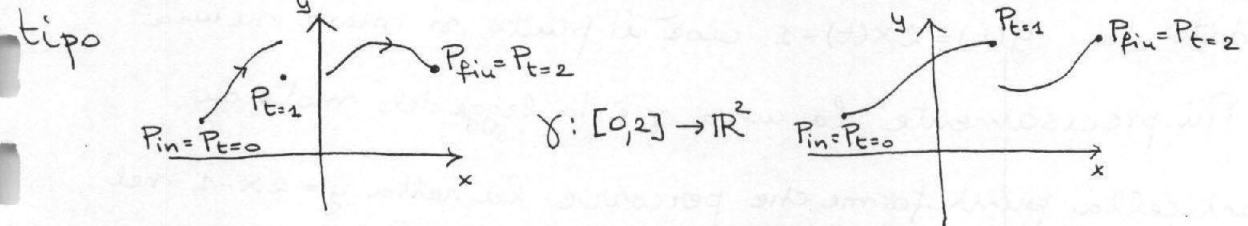 tipo
y
P_{t=1}
P_{fin}=P_{t=2}
P_{in}=P_{t=0}
x
γ: [0,2] → ℝ²
y
P_{t=1}
P_{fin}=P_{t=2}
P_{in}=P_{t=0}
x